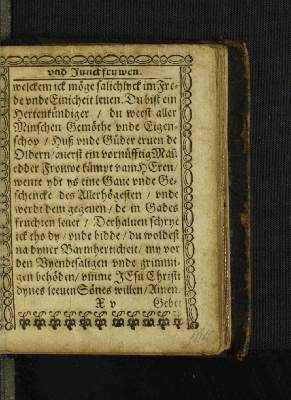 vnd Junckfruwen.
welckem ick möge salichlyck im Fre-
de vnde Einicheit leuen. Du bist ein
Hertenkündiger / du weest aller
Minschen Gemöthe vnde Eigen-
schop / Huß vnde Güder eruen de
Oldern / auerst ein vornüfftig Man
edder Frouwe kumpt vam HEren /
wente ydt ys eine Gaue vnde Ge-
schencke des Allerhögesten / vnde
werdt dem gegeuen / de in Gades
fruchten leuet / Derhaluen schrye
ick tho dy / vnde bidde / du woldest
na dyner Barmherticheit / my vor
den Vyendtsaligen vnde grimmi-
gen behöden / vmme JEsu Christi
dynes leeuen Sönes willen / Amen.
X v Gebet